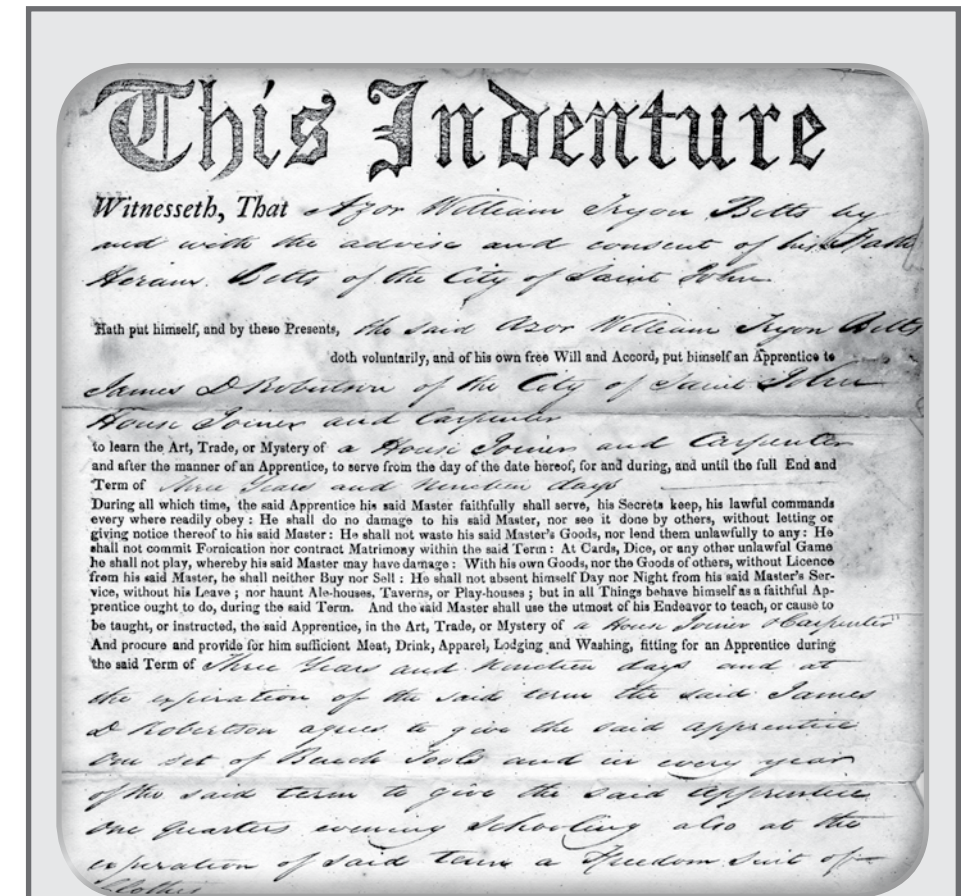 This Indenture
Witnesseth, That Azor William Tryon Betts by
and with the advise and consent of his
Heram Betts of the City of Saint John
Hath put himself, and by these Presents, the said Azor William Tryon Betts
doth voluntarily, and of his own free Will and Accord, put himself an Apprentice to
James D Robertson of the City of Saint John
House Joiner and Carpenter
to learn the Art, Trade, or Mystery of a House Joiner and Carpenter
and after the manner of an Apprentice, to serve from the day of the date hereof, for and during, and until the full End and
Term of Three Years and Nineteen days
During all which time, the said Apprentice his said Master faithfully shall serve, his Secrets keep, his lawful commands
every where readily obey : He shall do no damage to his said Master, nor see it done by others, without letting or
giving notice thereof to his said Master : He shall not waste his said Master's Goods, nor lend them unlawfully to any : He
shall not commit Fornication nor contract Matrimony within the said Term : At Cards, Dice, or any other unlawful Game
he shall not play, whereby his said Master may have damage : With his own Goods, nor the Goods of others, without Licence
from his said Master, he shall neither Buy nor Sell : He shall not absent himself Day nor Night from his said Master's Ser-
vice, without his Leave ; nor haunt Ale-houses, Taverns, or Play-houses ; but in all Things behave himself as a faithful Ap-
prentice ought to do, during the said Term. And the said Master shall use the utmost of his Endeavor to teach, or cause to
be taught, or instructed, the said Apprentice, in the Art, Trade, or Mystery of a House Joiner & Carpenter
And procure and provide for him sufficient Meat, Drink, Apparel, Lodging and Washing, fitting for an Apprentice during
the said Term of Three Years and Nineteen days and at
the expiration of the said term the said James
D Robertson agrees to give the said apprentice
one set of Bench Tools and in every year
of the said term to give the said apprentice
one quarters evening Schooling also at the
expiration of said term a Freedom Suit of
Clothes